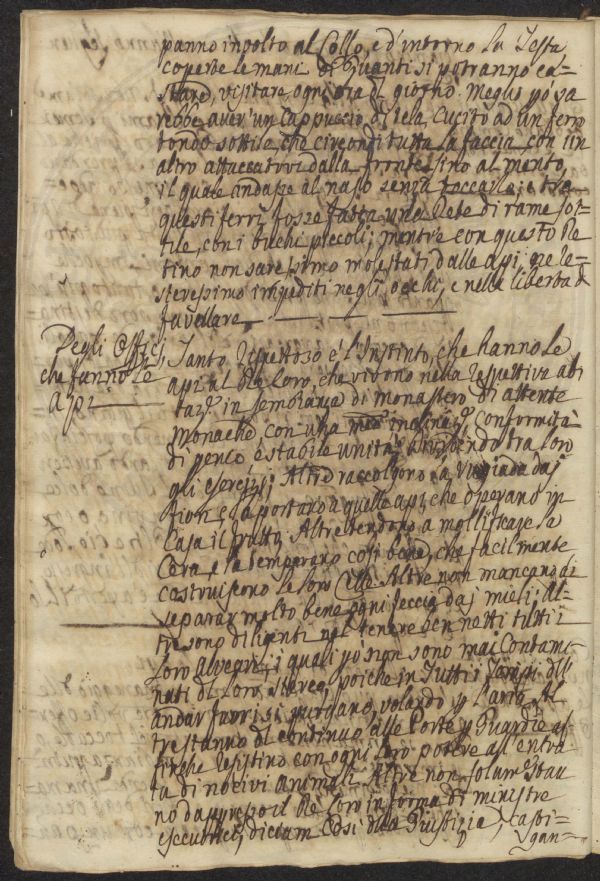 panno involto al Collo, e d'intorno la Testa
coperte le mani di Guanti si potranno ca=
strare, visitare ogni ora di giorno. Meglio po sa
rebbe aver un Cappuccio di tela Cucito ad un ferro
tondo sottile, che circondi tutta la faccia con un
altro attaccatovi dalla fronte sino al mento,
il quale andasse al naso senza toccarlo; e tra
questi ferri fosse fatta una Rete di rame sot=
tile, con i buchi piccoli; mentre con questo Re
tino non saressimo molestati dalle api, ne re=
steressimo impediti negli occhi, e nella libertà di
favellare.
Degli Officj,
che fanno le
Api
Tanto rispettoso è l'Instinto, che hanno le
api al Re loro, che vivono nella respettiva abi
taz.e in sembianza di monastero di attente
Monache, con una inclinaz.e, conformità
di genio, e stabile unità tra loro
gli esercizj; Altre raccolgono la rugiada daj
fiori, e la portano a quelle api, che operano in
Casa il frutto; Altre tendono a mollificare le
Cera, e le temperano così bene, che facilmente
costruiscono le loro Celle. Altre non mancano di
separar molto bene ogni feccia daj mieli; Al=
tre sono diligenti nel tenere ben netti tutti i
loro Alvearj, i quali non sono mai Contami=
nati di loro Sterco, poiche in Tutti i Tempi del
andar fuori si purgano, volando p l'aria. Al
tre stanno di continuo alle Porte p Guardie af
finche resistino con ogni loro potere all'entra
ta di nocivi animali. Altre non solam.e stan
no dappresso il Re loro in forma di ministre
esecutrici, diciam così di Giustizia, casti=
gan=